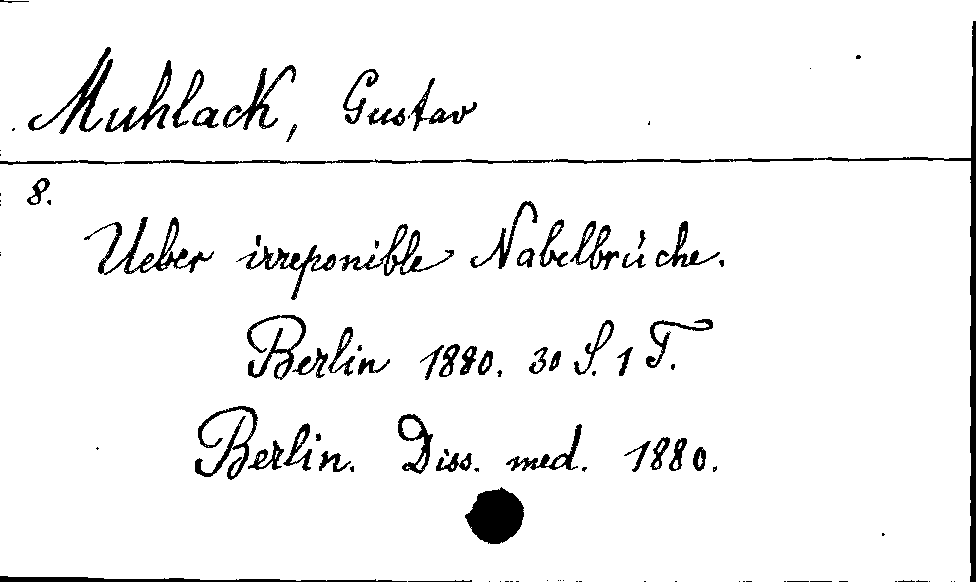 Muhlack, Gustav
8.
Ueber irreponible Nabelbrüche.
Berlin 1880. 30 S. 1 T.
Berlin. Diss. med. 1880.